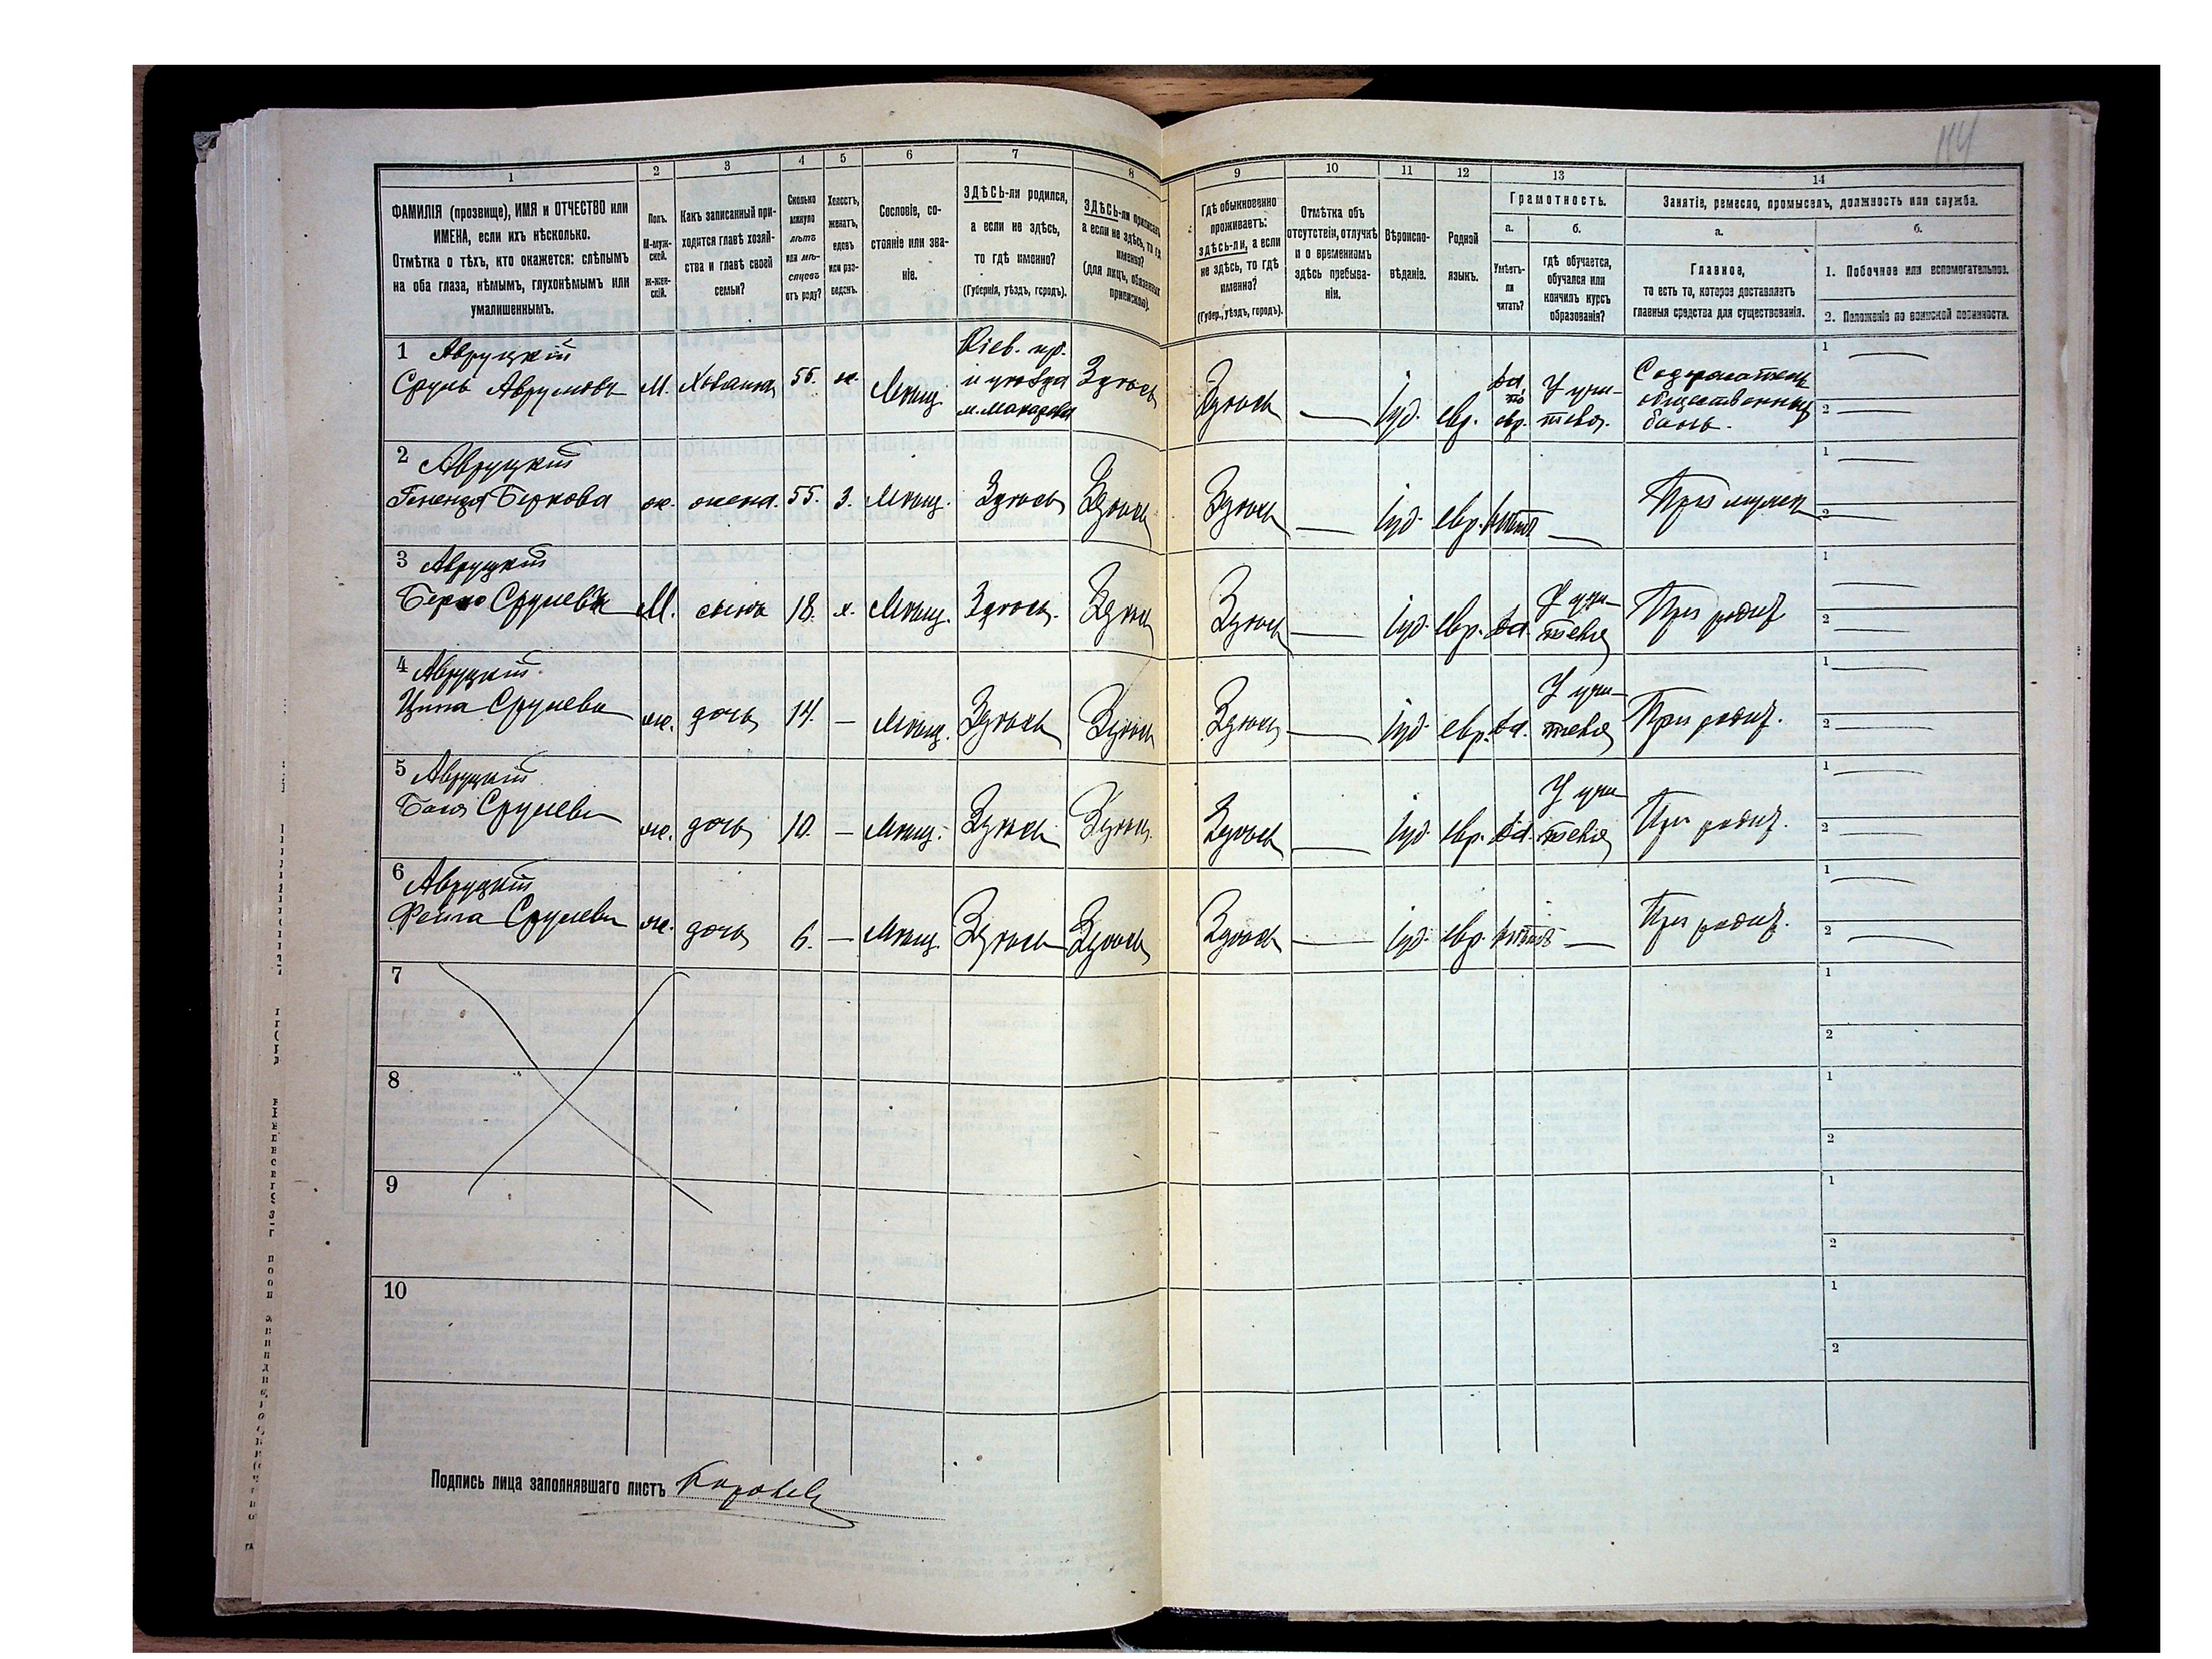 114
1 2 3 4 5 6 7 8 9 10 11 12 13 14
ФАМИЛІЯ (прозвище), ИМЯ и ОТЧЕСТВО или
ИМЕНА, если ихъ нѣсколько.
Отмѣтка о тѣхъ, кто окажется: слѣпымъ
на оба глаза, нѣмымъ, глухонѣмымъ или
умалишеннымъ.
Полъ.
М-муж-
ской.
Ж-жен-
скій.
Какъ записанный при-
ходится главѣ хозяй-
ства и главѣ своей
семьи?
Сколько
минуло
лѣтъ
или мѣ-
сяцевъ
отъ роду?
Холостъ,
женатъ,
вдовъ
или раз-
веденъ.
Сословіе, со-
стояніе или зва-
ніе.
ЗДѢСЬ-ли родился,
а если не здѣсь,
то гдѣ именно?
(Губернія, уѣздъ, городъ).
ЗДѢСЬ-ли приписанъ
а если не здѣсь, то гдѣ
именно?
(для лицъ, обязанныхъ
припиской).
Гдѣ обыкновенно
проживаетъ:
здѣсь-ли, а если
не здѣсь, то гдѣ
именно?
(Губер., уѣздъ, городъ).
Отмѣтка объ
отсутствіи, отлучкѣ
и о временномъ
здѣсь пребыва-
ніи.
Вѣроиспо-
вѣданіе.
Родной
языкъ.
Грамотность.
а.
Умѣетъ-
ли
читать?
б.
гдѣ обучается,
обучался или
кончилъ курсъ
образованія?
Занятіе, ремесло, промыселъ, должность или служба.
а.
Главное,
то есть то, которое доставляетъ
главныя средства для существованія.
б.
1. Побочное или вспомогательное.
2. Положеніе по воинской повинности.
1 Авруцкій
Сруль Аврумовъ М. Хозяинъ 55. ж. Мѣщ.
Кіев. гр.
и уѣзда
м. Макарова
Здѣсь Здѣсь — Іуд. евр.
да
по
евр.
У учи-
теля.
Содержатель
общественныхъ
бань.
1 —
2 —
2 Авруцкій
Генендя Беркова ж. жена. 55. З. Мѣщ. Здѣсь Здѣсь Здѣсь — Іуд. евр. нѣтъ — При мужѣ
1 —
2 —
3 Авруцкій
Берко Срулевъ М. сынъ 18. х. Мѣщ. Здѣсь. Здѣсь Здѣсь — Іуд. евр. да.
У учи-
теля
При родит.
1 —
2 —
4 Авруцкій
Ципа Срулева ж. дочь 14. — Мѣщ. Здѣсь Здѣсь Здѣсь — Іуд. евр. да.
У учи-
теля
При родит.
1 —
2 —
5 Авруцкій
Бася Срулева ж. дочь 10. — Мѣщ. Здѣсь Здѣсь Здѣсь — Іуд. евр. да.
У учи-
теля
При родит.
1 —
2 —
6 Авруцкій
Фейга Срулева ж. дочь 6. — Мѣщ. Здѣсь Здѣсь Здѣсь — Іуд. евр. нѣтъ — При родит.
1 —
2 —
7 1
2
8 1
2
9 1
2
10 1
2
Подпись лица заполнявшаго листъ